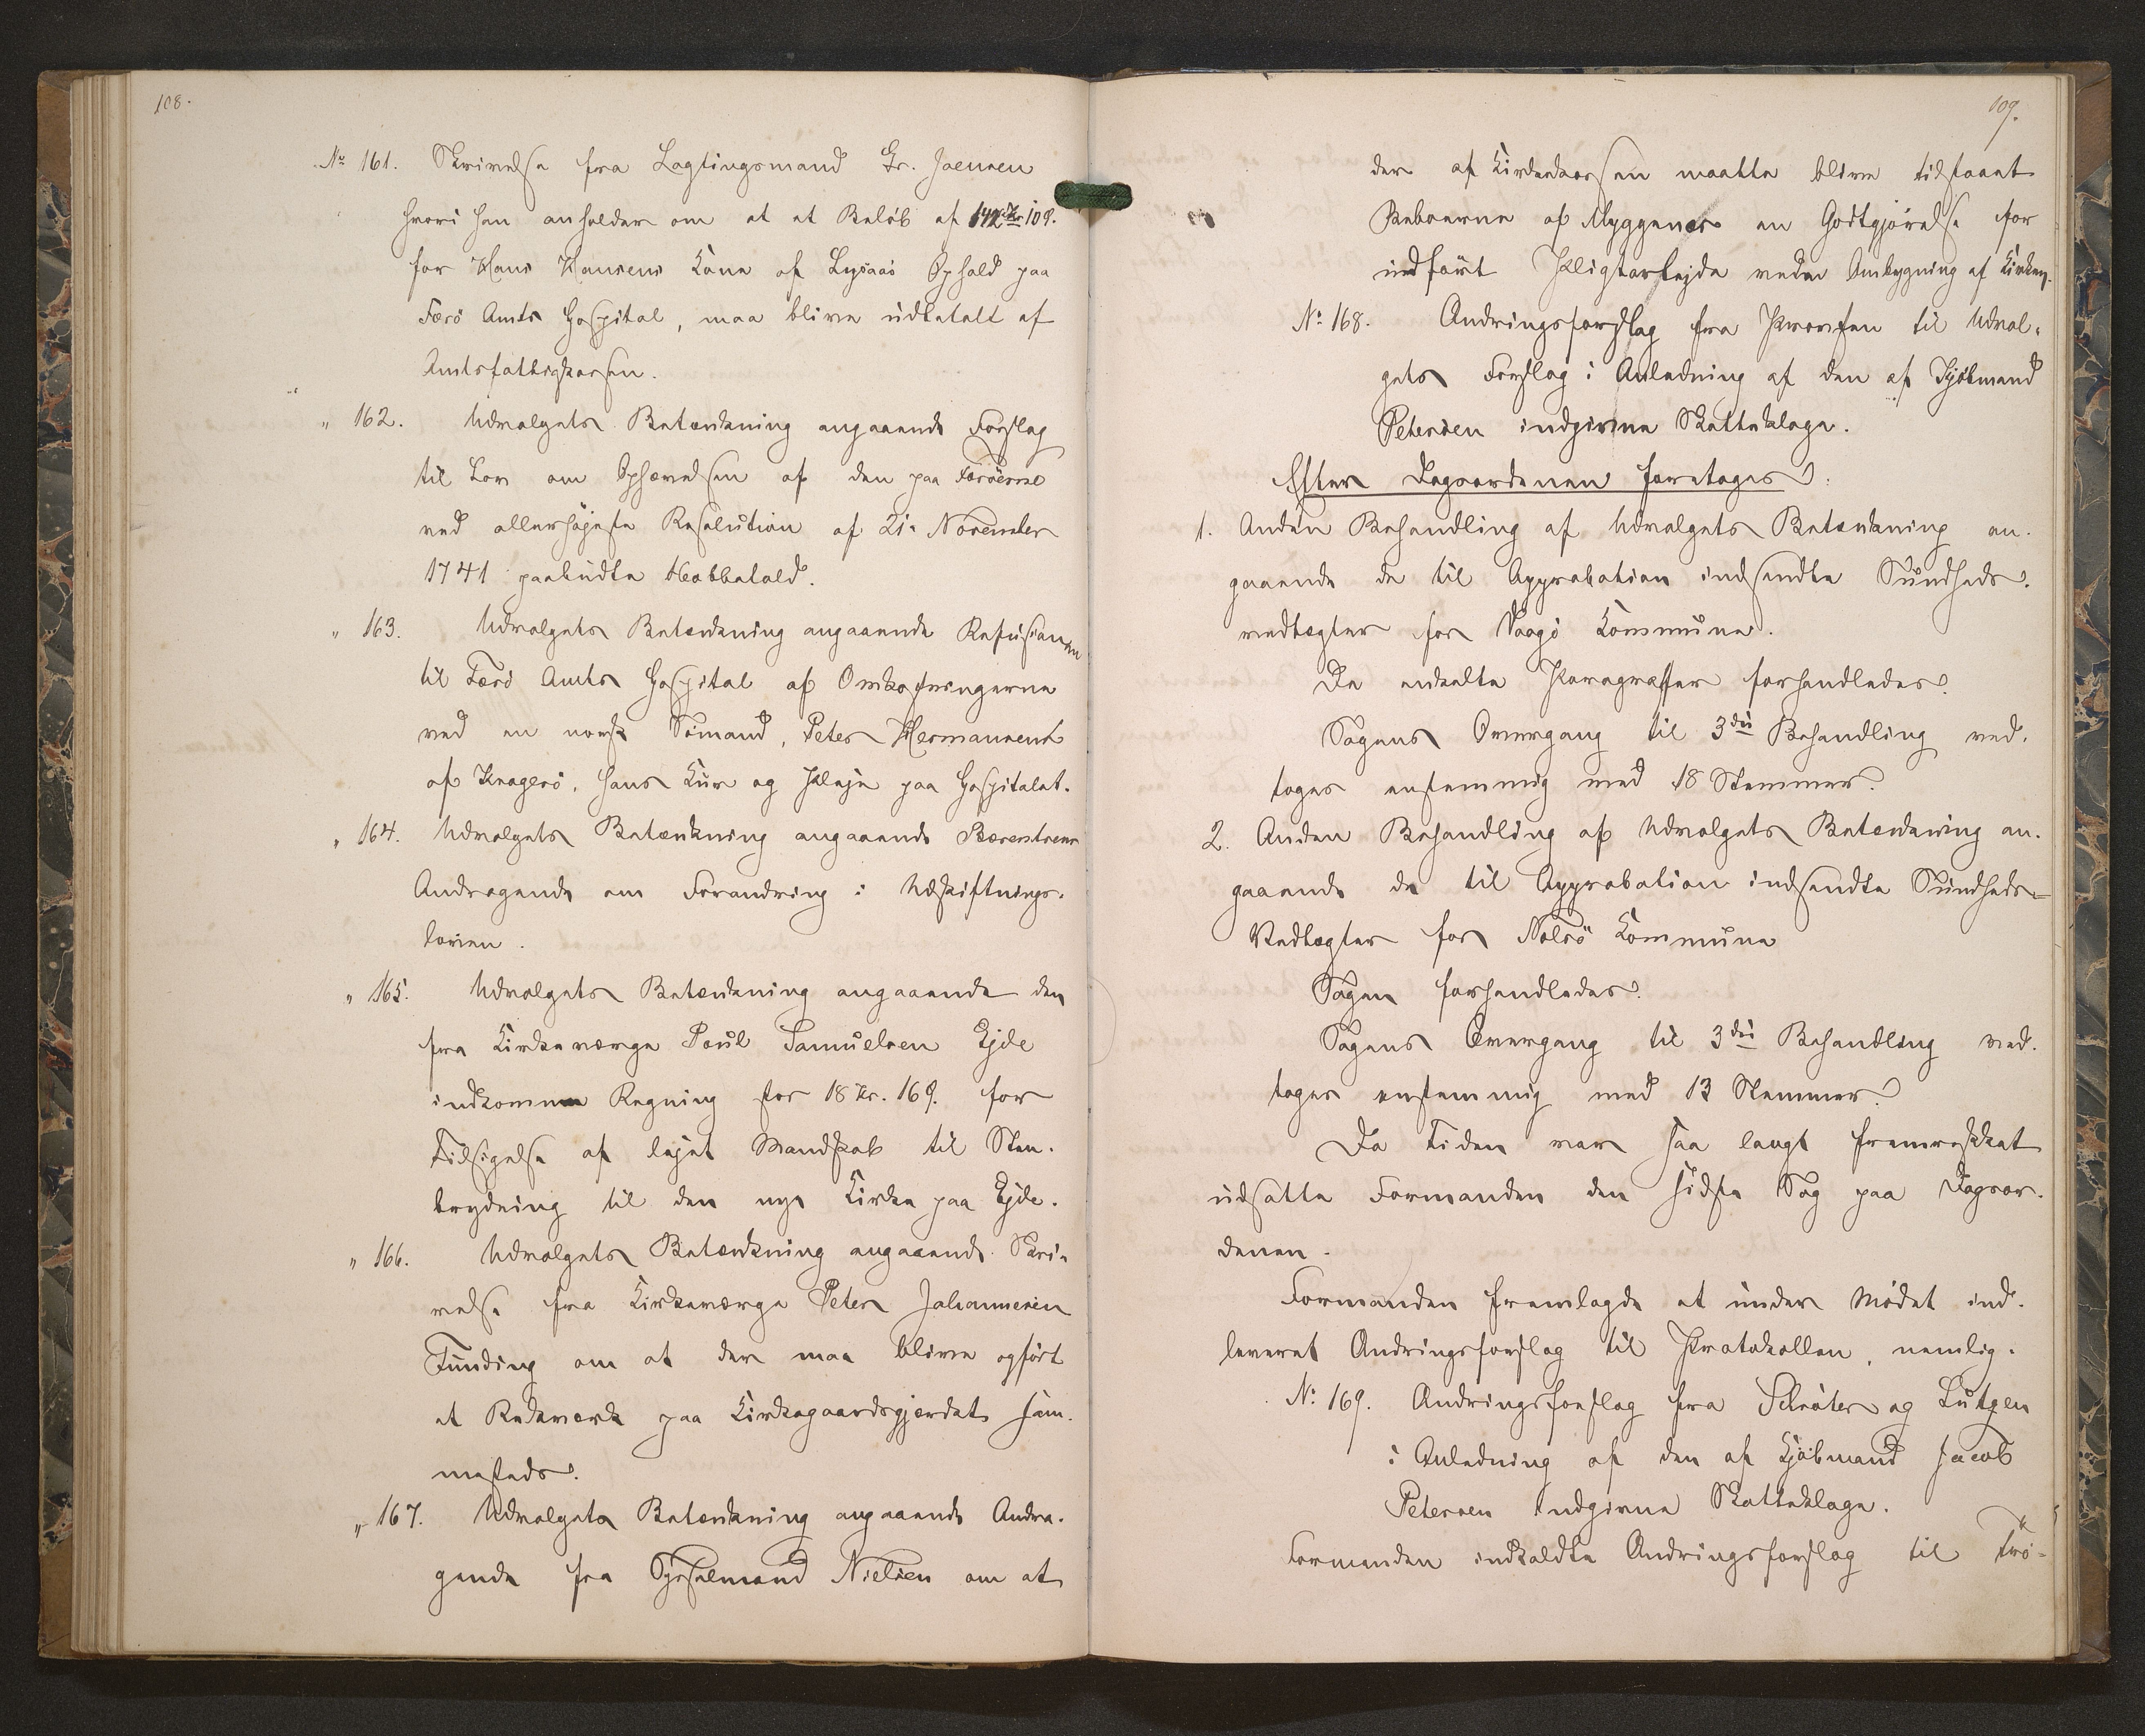 108.
No 161. Skrivelse fra Lagtingsmand Gr. Joensen
hvori han anholder om at et Beløb af 142 Kr 10 Ø.
for Hans Hansens Kone af Lysaas Ophold paa
Færø Amts Hospital, maa blive udbetalt af
Amtsfattigkassen.
" 162. Udvalgets Betænkning angaaende Forslag
til Lov om Ophævelsen af den paa Færøerne
ved allerhøjeste Resolution af 21. November
1741 paabudte Næbbetold.
" 163. Udvalgets Betænkning angaaende Refusionen
til Færø Amts Hospital af Omkostningerne
ved en norsk Sømand, Peter Hermansens
af Kragerø, hans Kur og Pleje paa Hospitalet.
" 164. Udvalgets Betænkning angaaende Bærentsens
Andragende om Forandring i Udskiftnings-
loven.
" 165. Udvalgets Betænkning angaaende den
fra Kirkeværge Poul Samuelsen Ejde
indkomne Regning stor 18 Kr. 16 Ø. for
Tilsigelse af lejet Mandskab til Sten-
brydning til den nye Kirke paa Ejde.
" 166. Udvalgets Betænkning angaaende Skri-
velse fra Kirkeværge Peter Johannesen
Funding om at der maa blive opført
et Rækværk paa Kirkegaardsgjerdet sam-
mesteds.
" 167. Udvalgets Betænkning angaaende Andra-
gende fra Sysselmand Nielsen om at
109.
der af Kirkekassen maatte blive tilstaaet
Beboerne af Myggenæs en Godtgjørelse for
udført Pligtarbejde ved Ombygning af Kirken.
No 168. Ændringsforslag fra Provsten til Udval-
gets Forslag i Anledning af den af Kjøbmand
Petersen indgivne Skatteklage.
Efter Dagsordenen foretages:
1. Anden Behandling af Udvalgets Betænkning an-
gaaende de til Approbation indsendte Sundheds-
vedtægter for Vaagø Kommune.
De enkelte Paragraffer forhandledes.
Sagens Overgang til 3die Behandling ved-
toges enstemmig med 18 Stemmer.
2. Anden Behandling af Udvalgets Betænkning an-
gaaende de til Approbation indsendte Sundheds-
Vedtægter for Nolsø Kommune
Sagen forhandledes.
Sagens Overgang til 3die Behandling ved-
toges enstemmig med 13 Stemmer.
Da Tiden var saa langt fremrykket
udsatte Formanden den sidste Sag paa Dagsor-
denen.
Formanden fremlagde et under Mødet ind-
leveret Ændringsforslag til Protokollen, nemlig.
No 169. Ændringsforslag fra Schrøter og Lützen
i Anledning af den af Kjøbmand Jacob
Petersen indgivne Skatteklage.
Formanden indkaldte Ændringsforslag til